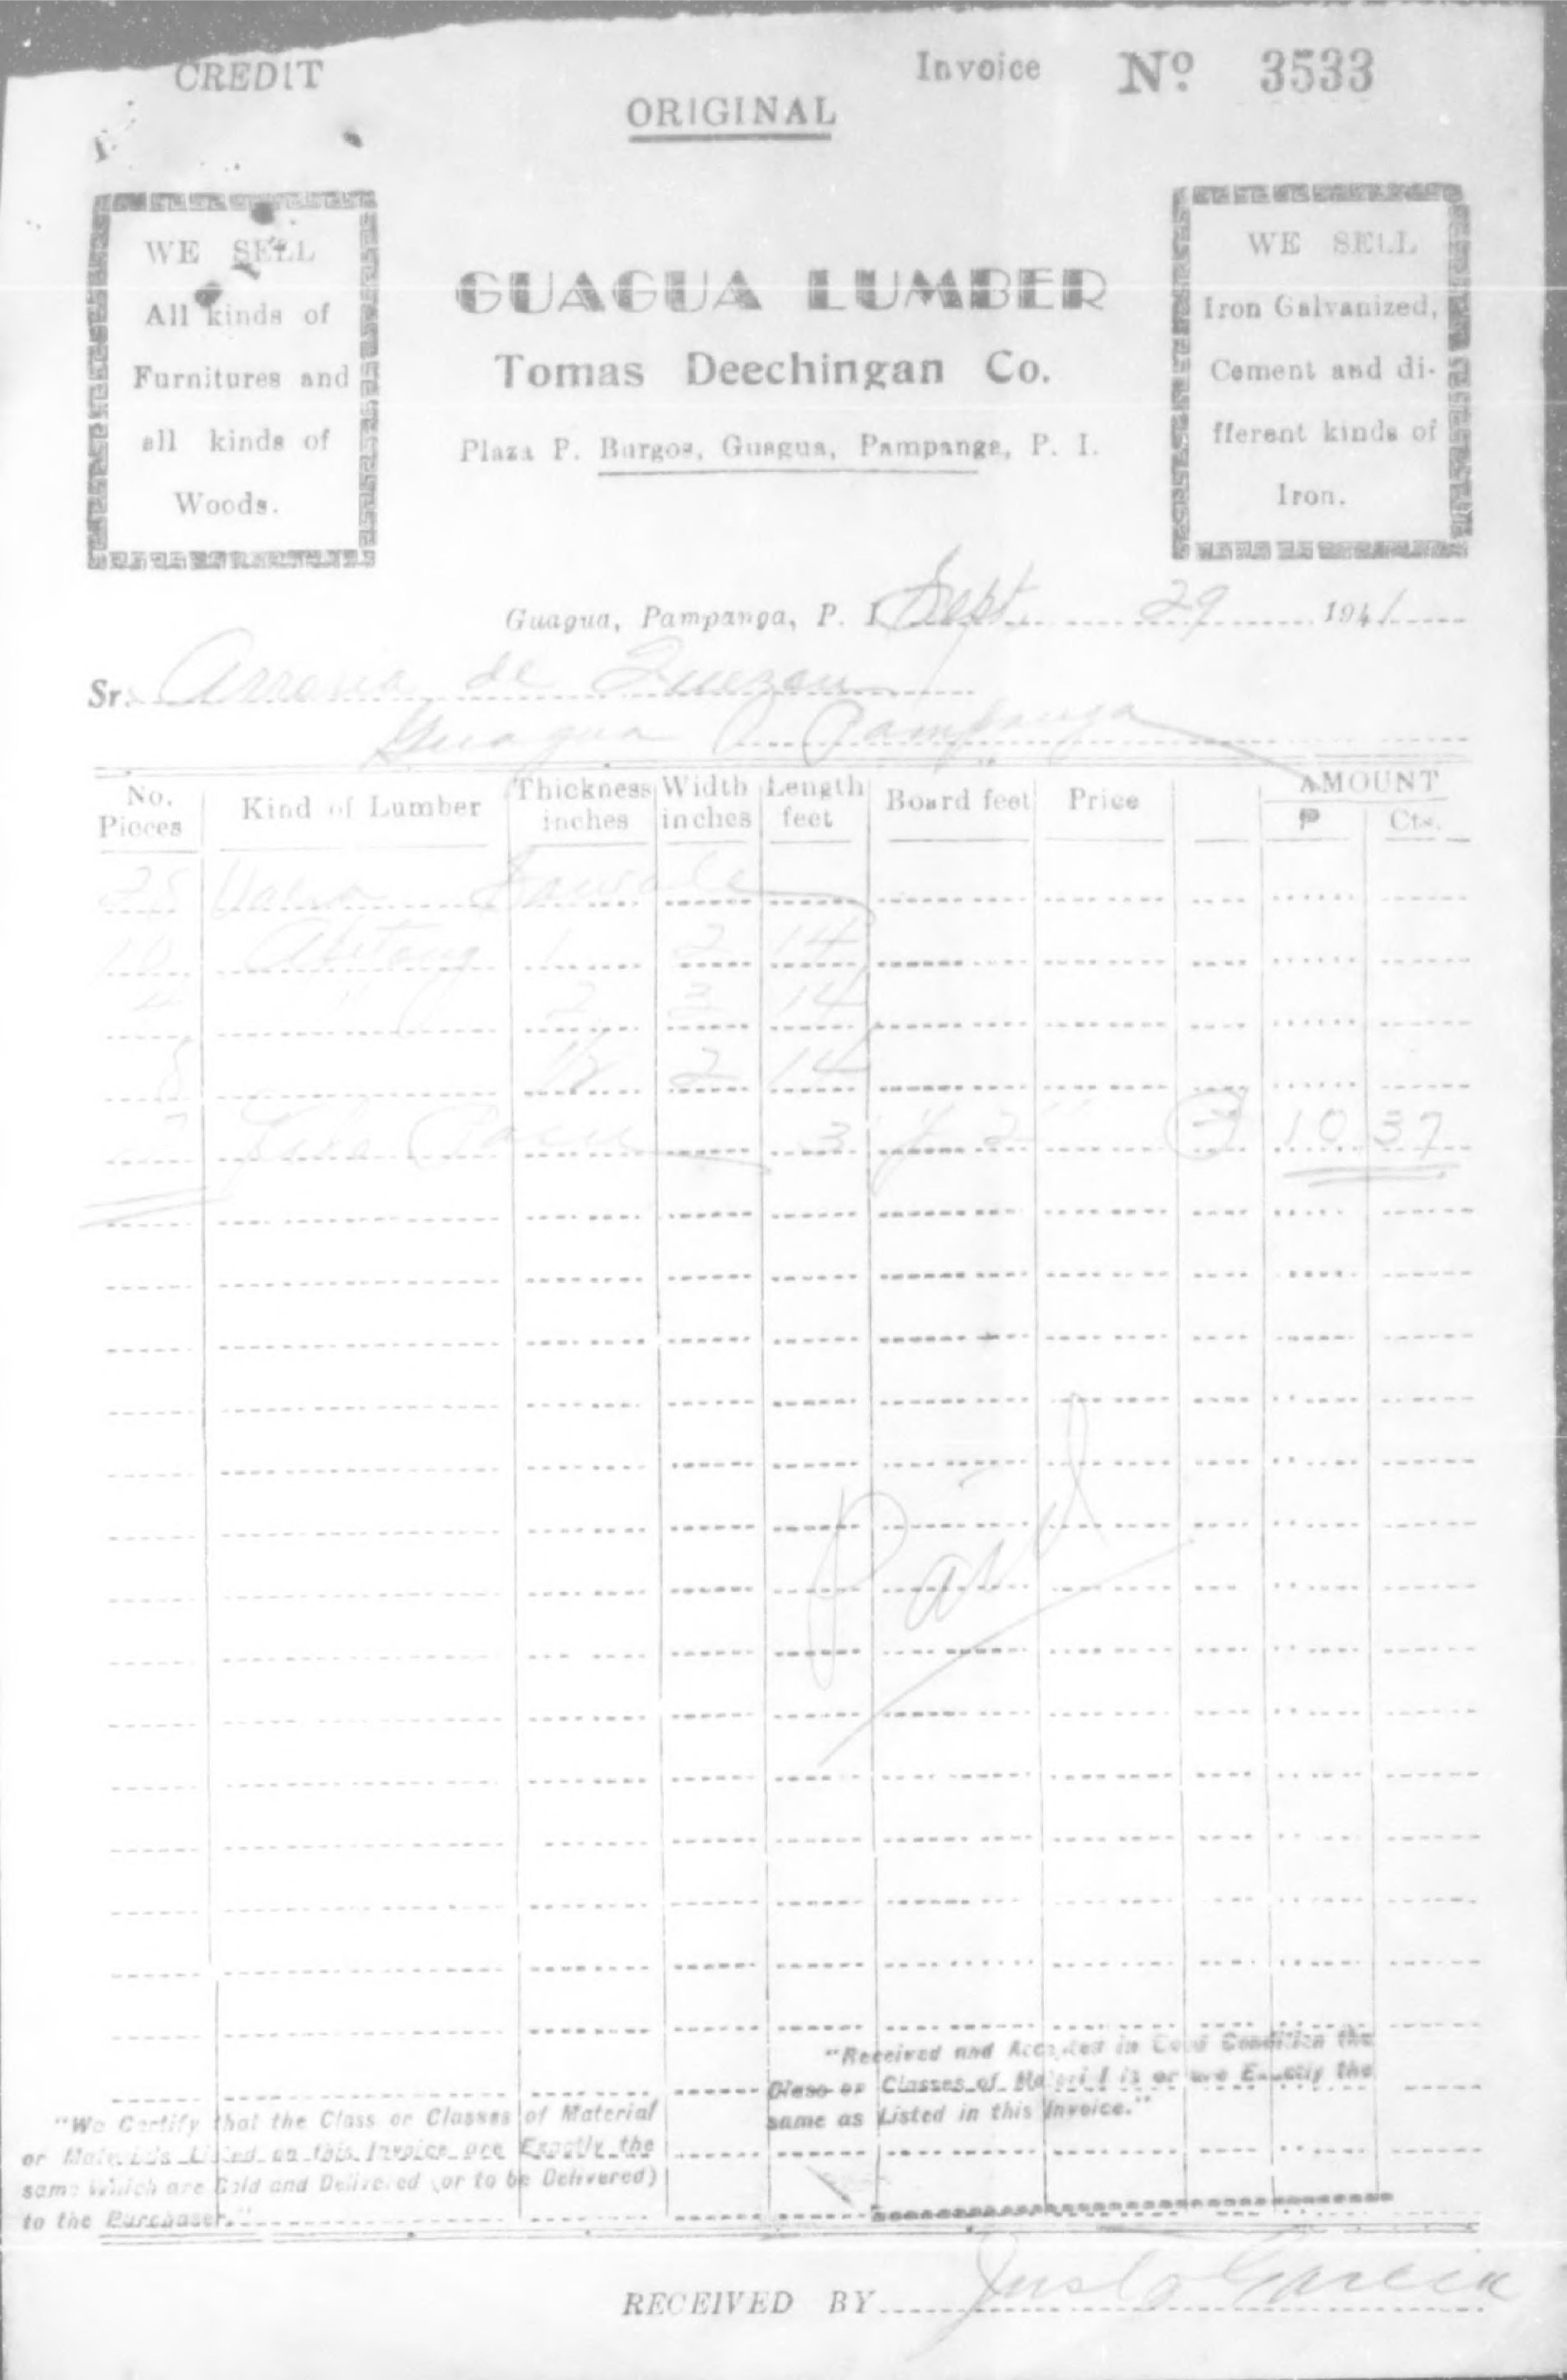 CREDIT
Invoice Nº 3533
ORIGINAL
WE SELL
All kinds of
Furnitures and
all kinds of
Woods.
GUAGUA LUMBER
Tomas Deechingan Co.
Plaza P. Burgos, Guagua, Pampanga, P. I.
WE SELL
Iron Galvanized,
Cement and di-
fferent kinds of
Iron.
Guagua, Pampanga, P. I. Sept. 29 1941
Sr. de
Guagua Pampanga
No. Pieces Kind of Lumber Thickness inches Width inches Length feet Board feet Price AMOUNT
₱ Cts.
10 1 2 14
4 " 2 3 14
8 1/2 2 14
3 2" 10 37
Paid
"Received and Accepted in Good Condition the
Class or Classes of Material is or are Exactly the
same as Listed in this Invoice."
"We Certify that the Class or Classes of Material
or Materials Listed on this Invoice are Exactly the
same Which are Sold and Delivered (or to be Delivered)
to the Purchaser."
RECEIVED BY Justo Garcia